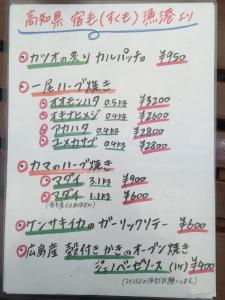 高知県 宿毛(すくも)漁港より
カツオの炙り カルパッチョ ¥950
一尾ハーブ焼き
オオモンハタ 0.5kg ¥3200
オキナヒメジ 0.4kg ¥2600
アカハタ 0.4kg ¥2800
ユメカサゴ 0.4kg ¥2800
カマのハーブ焼き
マダイ 3.1kg ¥900
マダイ 1.1kg ¥600
ケンサキイカのガーリックソテー ¥600
広島産 殻付きかきのオーブン焼き
ジェノベーゼソース (1ヶ) ¥400